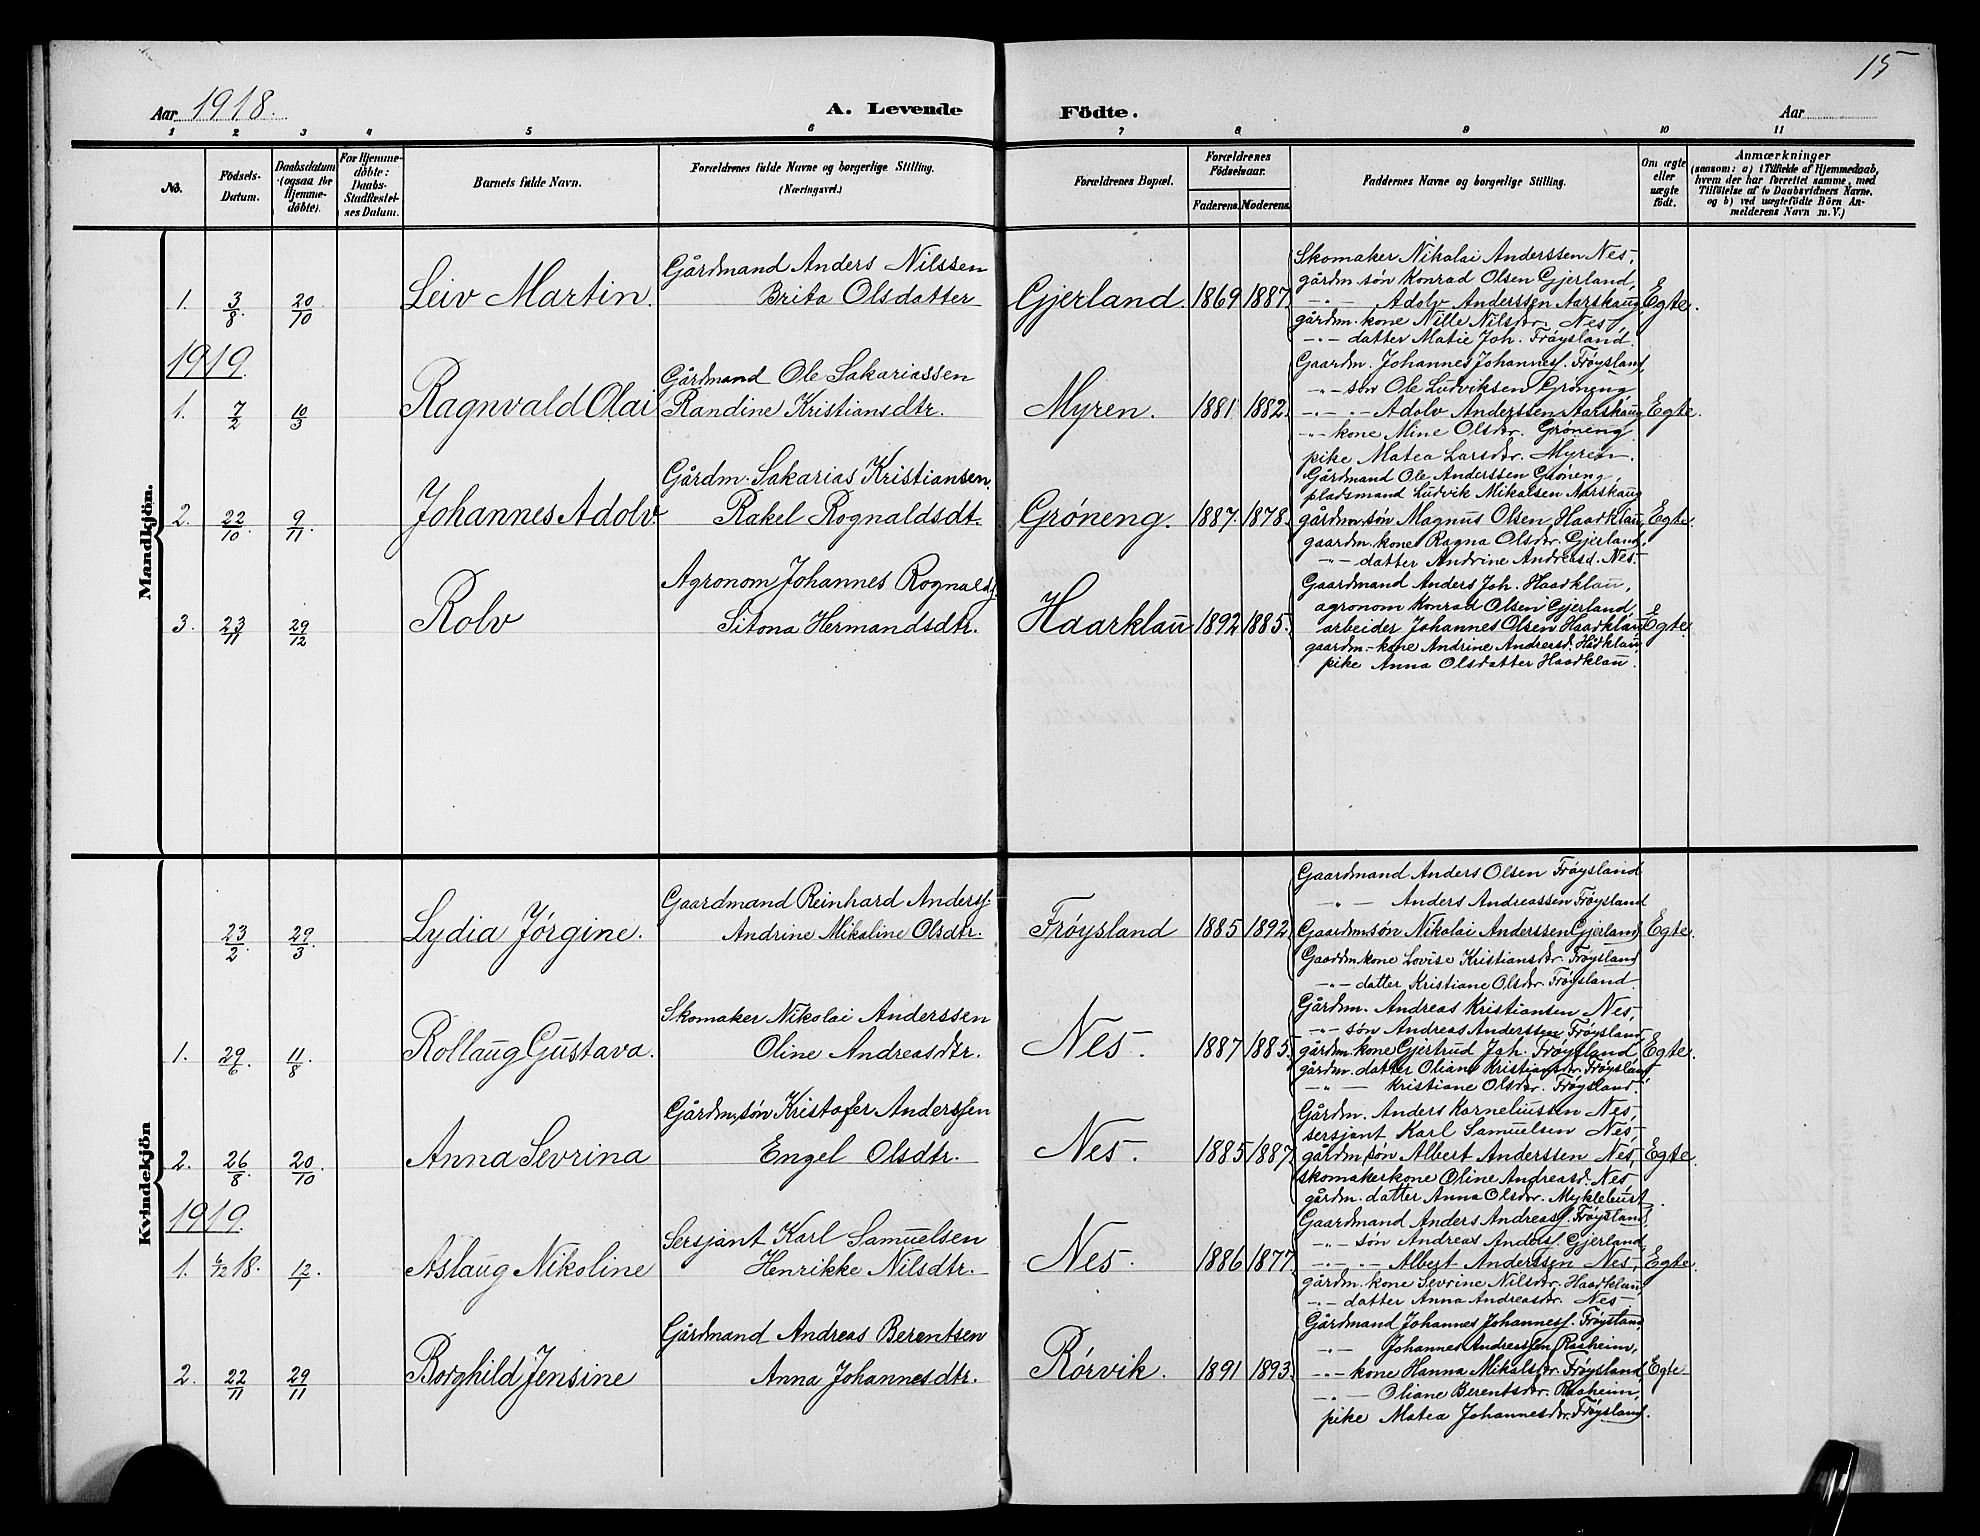 15
Aar 1918. A. Levende Födte. Aar
1 2 3 4 5 6 7 8 9 10 11
No. Födsels-Datum. Daabsdatum (ogsaa for Hjemmedöbte). For Hjemmedöbte: Daabs-Stadfæstelses Datum. Barnets fulde Navn. Forældrenes fulde Navne og borgerlige Stilling. (Næringsvei.) Forældrenes Bopæl. Forældrenes Födselsaar. Faderens. Moderens. Faddernes Navne og borgerlige Stilling. Om ægte eller uægte födt. Anmærkninger (saasom: a) i Tilfælde af Hjemmedaab, hvem der har forrettet samme, med Tilföielse af to Daabsvidners Navne, og b) ved uægtefödte Börn Anmelderens Navn m. V.)
Mandkjön.
Gårdmand Anders Nilssen
1. 3/8 20/10 Leiv Martin. Brita Olsdatter Gjerland. 1869 1887. Egte.
Skomaker Nikolai Anderssen Nes,
gårdm. søn Konrad Olsen Gjerland,
-"- Adolv Anderssen Aarskaug
gårdm. kone Nille Nilsdr. Nes,
-"- datter Matie Joh. Frøysland.
1919
Gårdmand Ole Sakariassen
1. 7/2 10/3 Ragnvald Olai Randine Kristiansdtr. Myren. 1881 1882. Egte.
Gaardm. Johannes Johannesf. Frøysland,
-"- søn Ole Ludviksen Grøneng,
-"- -"- Adolv Anderssen Aarskaug
-"- kone Mine Olsdr. Grøneng
pike Matea Larsdr. Myren.
Gårdm. Sakarias Kristiansen.
2. 22/10 9/11 Johannes Adolv. Rakel Rognaldsdt. Grøneng. 1887. 1878. Egte.
Gårdmand Ole Anderssen Grøneng,
pladsmand Ludvik Mikalsen Aarskaug
gårdm. søn Magnus Olsen Haadklau,
gaardm. kone Ragna Olsdr. Gjerland,
-"- datter Andrine Andreasd. Nes.
Agronom Johannes Rognaldf.
3. 23/11 29/12 Rolv Sitona Hermandsdtr. Haarklau 1892 1885. Egte
Gaardmand Anders Joh. Haadklau,
agronom Konrad Olsen Gjerland,
arbeider Johannes Olsen Haadklau
gaardm. kone Andrine Andreasd. Hadklau,
pike Anna Olsdatter Haadklau.
Kvindekjön
Gaardmand Reinhard Andersf.
23/2 29/3 Lydia Jørgine. Andrine Mikaline Olsdtr. Frøysland 1885 1892 Egte.
Gaardmand Anders Olsen Frøysland
-"- Anders Andreassen Frøysland
Gaardm. søn Nikolai Anderssen Gjerland,
Gaardm. kone Lovise Kristiansdr. Frøysland
-"- datter Kristiane Olsdr. Frøysland.
Skomaker Nikolai Anderssen
1. 29/6 11/8 Rollaug Gustava. Oline Andreasdtr. Nes. 1887 1885. Egte.
Gårdm. Andreas Kristiansen Nes,
-"- søn Andreas Anderssen Frøysland
gårdm. kone Gjertrud Joh. Frøysland,
gårdm. datter Oliane Kristiansdr. Frøysland
-"- Kristiane Olsdr. Frøysland.
Gårdm. søn Kristofer Anderssen
2. 26/8 20/10 Anna Sevrina Engel Olsdtr. Nes. 1885 1887. Egte.
Gårdm. Anders Korneliussen Nes,
sersjant Karl Samuelsen Nes,
gårdm. søn Albert Anderssen Nes,
skomakerkone Oline Andreasd. Nes
gårdm. datter Anna Olsdr. Myklebust.
1919.
Sersjant Karl Samuelsen
1. 6/12 18. 12/1 Aslaug Nikoline Henrikke Nilsdtr. Nes. 1886 1877. Egte.
Gaardmand Anders Andreasf. Frøysland,
-"- søn Andreas Andersf. Gjerland,
-"- -"- Albert Anderssen Nes,
gårdm. kone Sevrine Nilsdr. Haadklau,
-"- datter Anna Andreasdr. Nes
Gårdmand Andreas Berentsen
2. 22/11 29/11 Borghild Jensine Anna Johannesdtr. Rørvik. 1891 1893. Egte
Gårdmand Johannes Johannesf. Frøysland
-"- Johannes Anderssen Raaheim,
-"- kone Hanna Mikalsdr. Frøysland
-"- Oliane Berentsdr. Raaheim,
pike Matea Johannesdr. Frøysland.